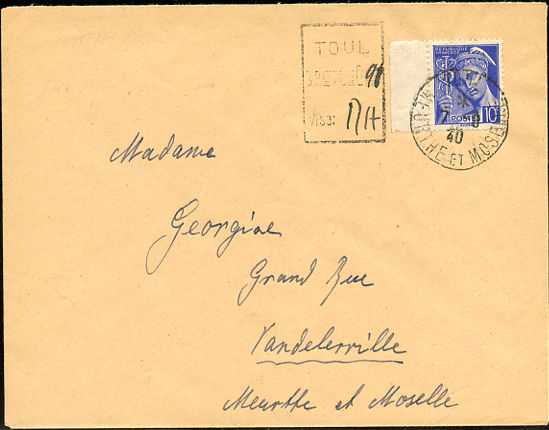 TOUL
VISA:
REPUBLIQUE FRANCAISE
POSTES 10c
7 8
40
MEURTHE ET MOSELLE
Madame
Georgine
Grand Rue
Vandelerville
Meurthe et Moselle